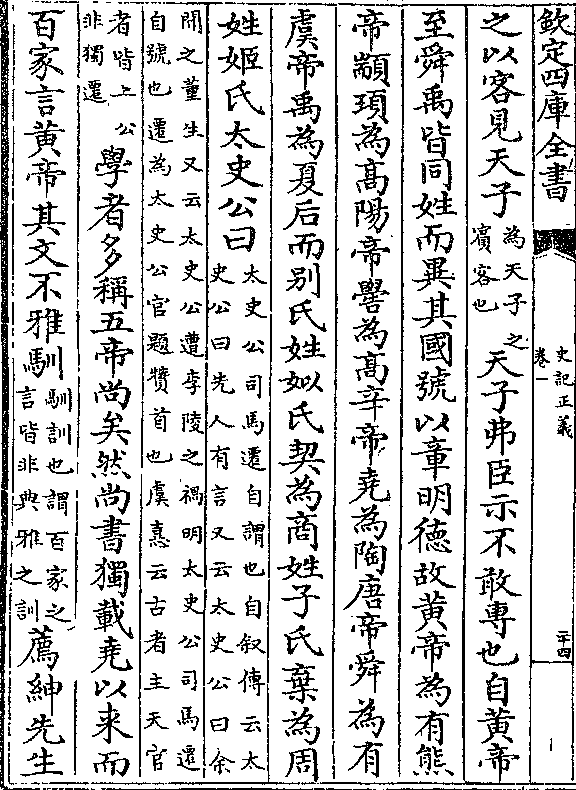 欽定四庫全書
史記正義
卷一
二十四
之以客見天子為天子之賓客也天子弗臣示不敢專也自黃帝
至舜禹皆同姓而異其國號以章明德故黃帝為有熊
帝顓頊為高陽帝嚳為高辛帝堯為陶唐帝舜為有
虞帝禹為夏后而別氏姓姒氏契為商姓子氏棄為周
姓姬氏太史公曰太史公司馬遷自謂也自叙傳云太史公曰先人有言又云太史公曰余
聞之董生又云太史公遭李陵之禍明太史公司馬遷自號也遷為太史公官題贊首也虞憙云古者主天官
者皆上公非獨遷學者多稱五帝尚矣然尚書獨載堯以來而
百家言黃帝其文不雅馴馴訓也謂百家之言皆非典雅之訓薦紳先生